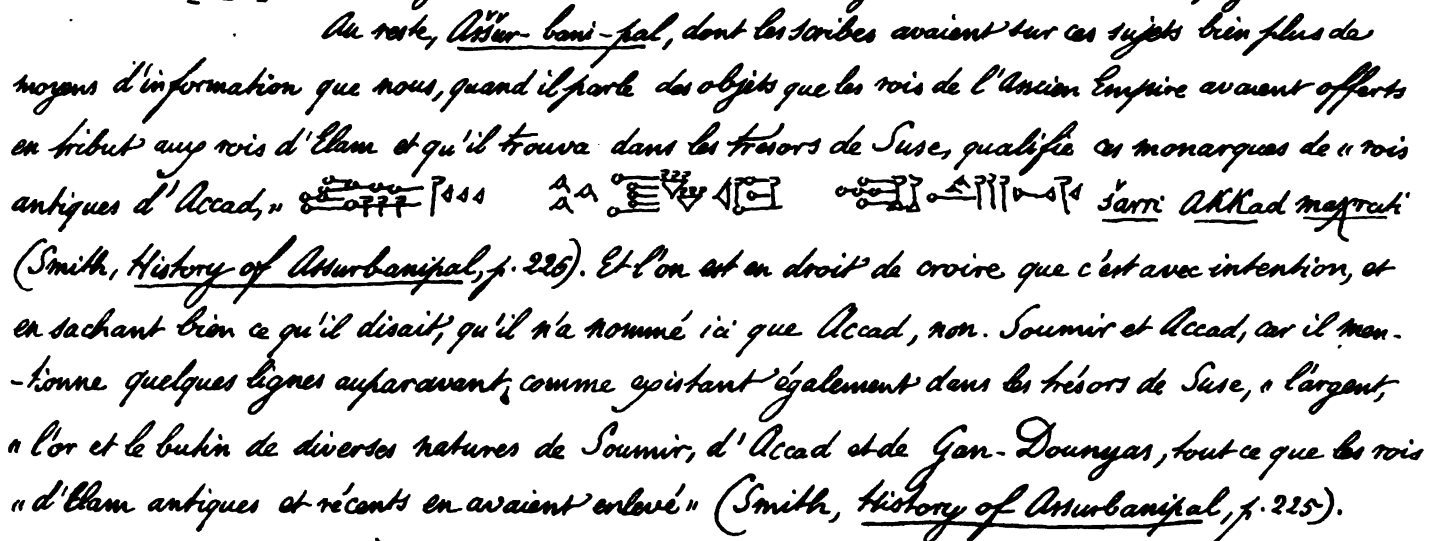 Au reste, Aššur-bani-pal, dont les scribes avaient sur ces sujets bien plus de
moyens d'information que nous, quand il parle des objets que les rois de l'Ancien Empire avaient offerts
en tribut aux rois d'Elam et qu'il trouva dans les trésors de Suse, qualifie ces monarques de « rois
antiques d'Accad, » šarri AKKad maḫruti
(Smith, History of Assurbanipal, p. 226). Et l'on est en droit de croire que c'est avec intention, et
en sachant bien ce qu'il disait, qu'il n'a nommé ici que Accad, non. Soumir et Accad, car il men-
-tionne quelques lignes auparavant, comme existant également dans les trésors de Suse, « l'argent,
« l'or et le butin de diverses natures de Soumir, d'Accad et de Gan-Dounyas, tout ce que les rois
« d'Elam antiques et récents en avaient enlevé » (Smith, History of Assurbanipal, p. 225).